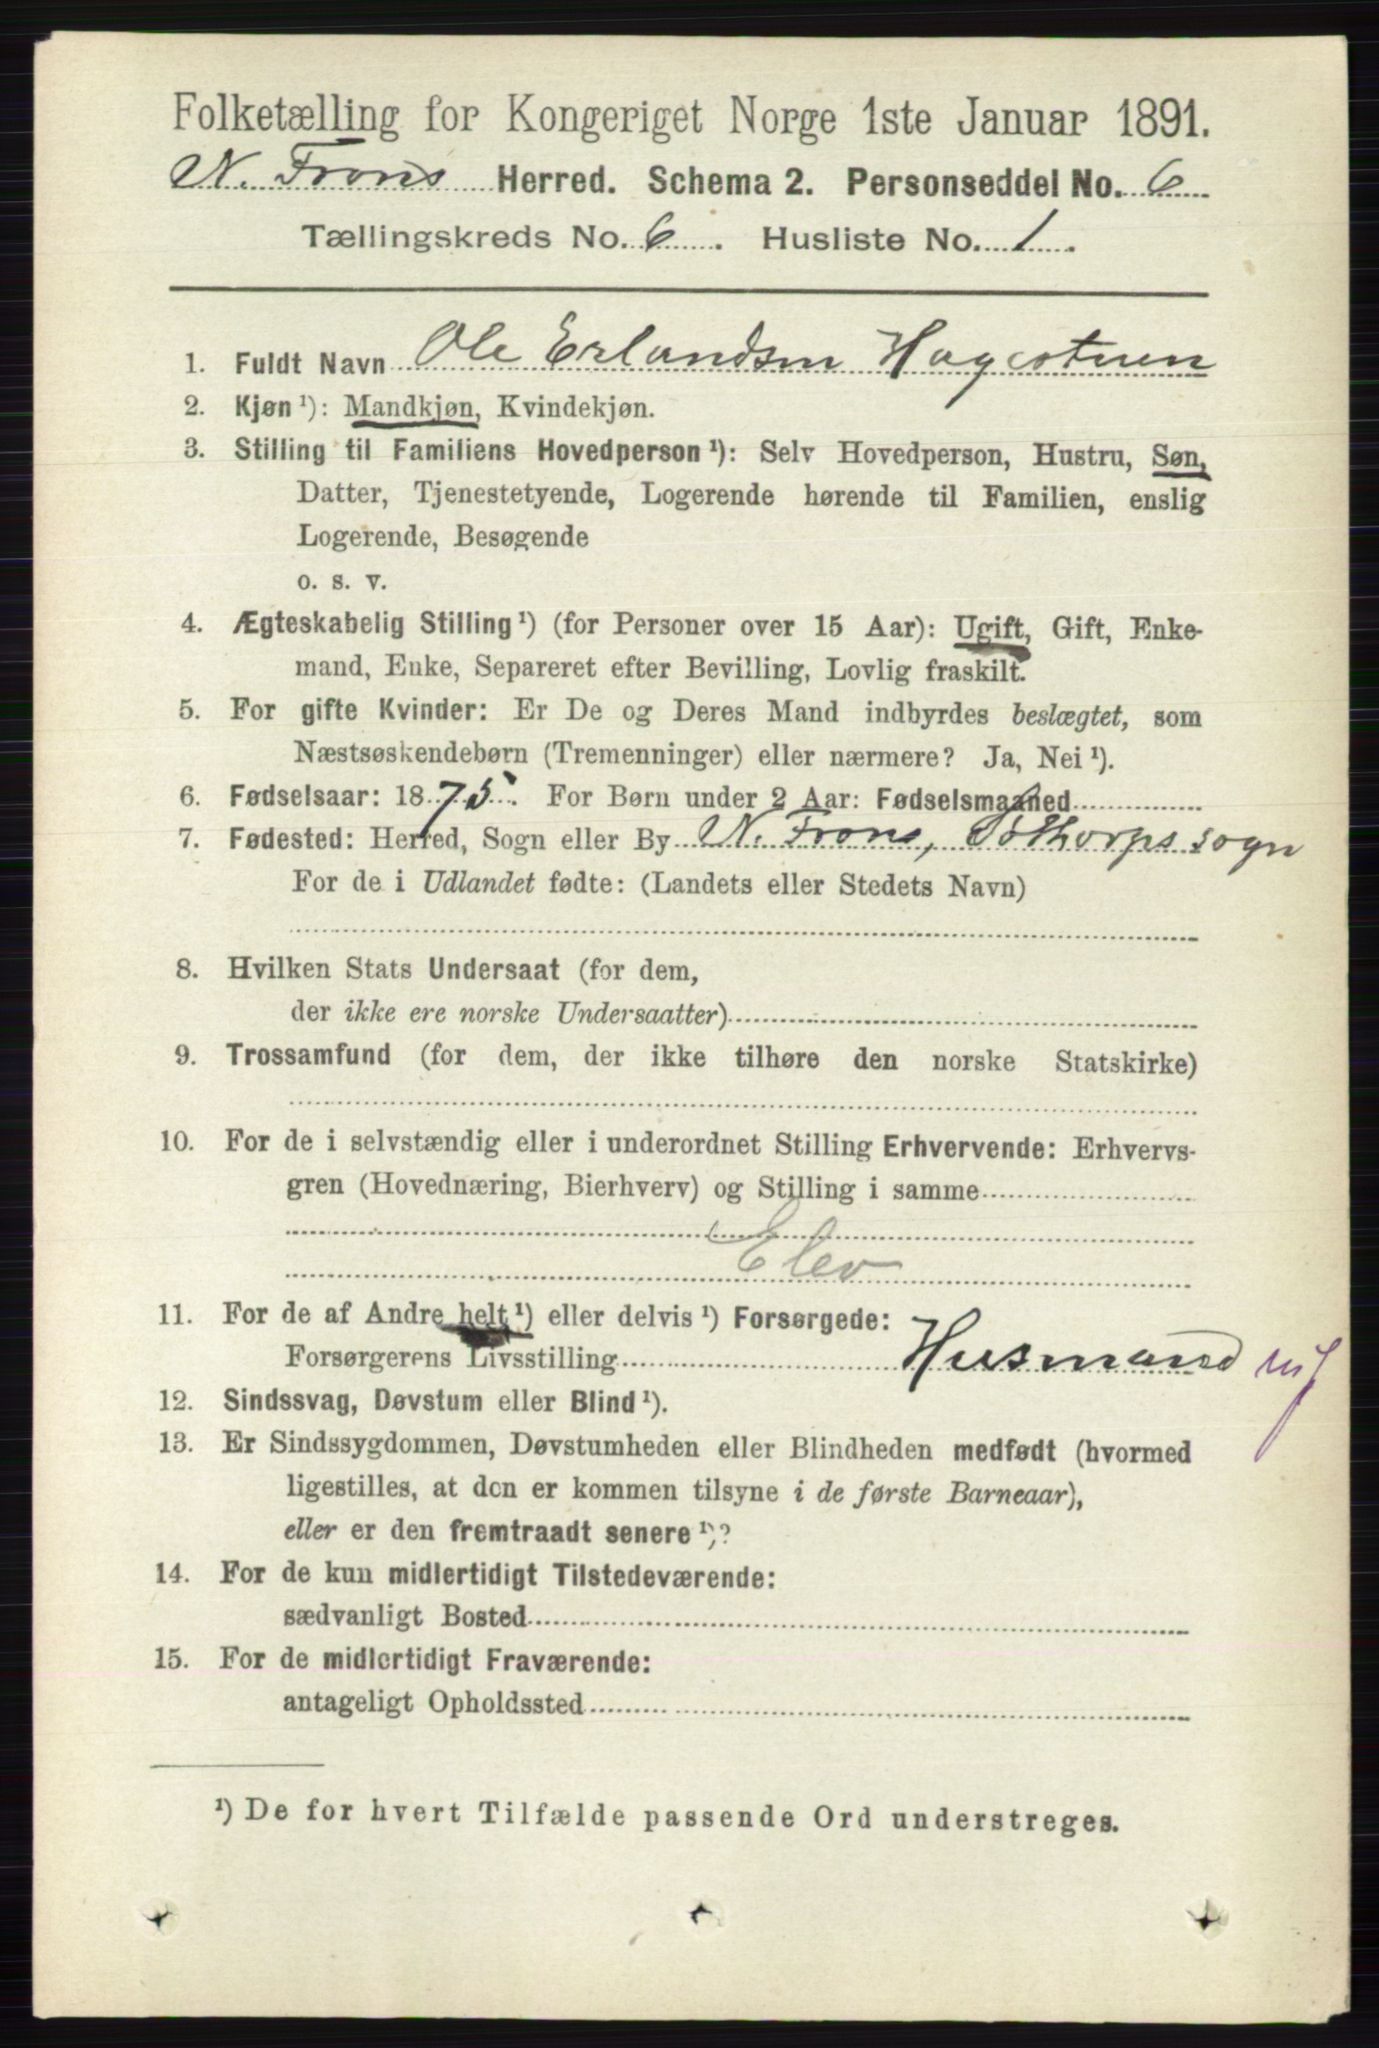 Folketælling for Kongeriget Norge 1ste Januar 1891.
N. Frons Herred. Schema 2. Personseddel No. 6
Tællingskreds No. 6. Husliste No. 1.
1. Fuldt Navn Ole Erlandsen Hagestuen
2. Kjøn ¹): Mandkjøn, Kvindekjøn.
3. Stilling til Familiens Hovedperson ¹): Selv Hovedperson, Hustru, Søn,
Datter, Tjenestetyende, Logerende hørende til Familien, enslig
Logerende, Besøgende
o. s. v.
4. Ægteskabelig Stilling ¹) (for Personer over 15 Aar): Ugift, Gift, Enke-
mand, Enke, Separeret efter Bevilling, Lovlig fraskilt.
5. For gifte Kvinder: Er De og Deres Mand indbyrdes beslægtet, som
Næstsøskendebørn (Tremenninger) eller nærmere? Ja, Nei ¹).
6. Fødselsaar: 1875. For Børn under 2 Aar: Fødselsmaaned
7. Fødested: Herred, Sogn eller By N. Frons, Sothorps sogn
For de i Udlandet fødte: (Landets eller Stedets Navn)
8. Hvilken Stats Undersaat (for dem,
der ikke ere norske Undersaatter)
9. Trossamfund (for dem, der ikke tilhøre den norske Statskirke)
10. For de i selvstændig eller i underordnet Stilling Erhvervende: Erhvervs-
gren (Hovednæring, Bierhverv) og Stilling i samme
Elev
11. For de af Andre helt ¹) eller delvis ¹) Forsørgede:
Forsørgerens Livsstilling Husmand
12. Sindssvag, Døvstum eller Blind ¹).
13. Er Sindssygdommen, Døvstumheden eller Blindheden medfødt (hvormed
ligestilles, at den er kommen tilsyne i de første Barneaar),
eller er den fremtraadt senere ¹)?
14. For de kun midlertidigt Tilstedeværende:
sædvanligt Bosted
15. For de midlertidigt Fraværende:
antageligt Opholdssted
¹) De for hvert Tilfælde passende Ord understreges.